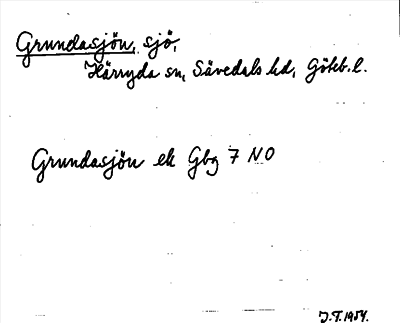 Grundasjön, sjö,
Härryda sn, Sävedals hd, Göteb. l.
Grundasjön ek Gbg 7 NO
J.T. 1954.